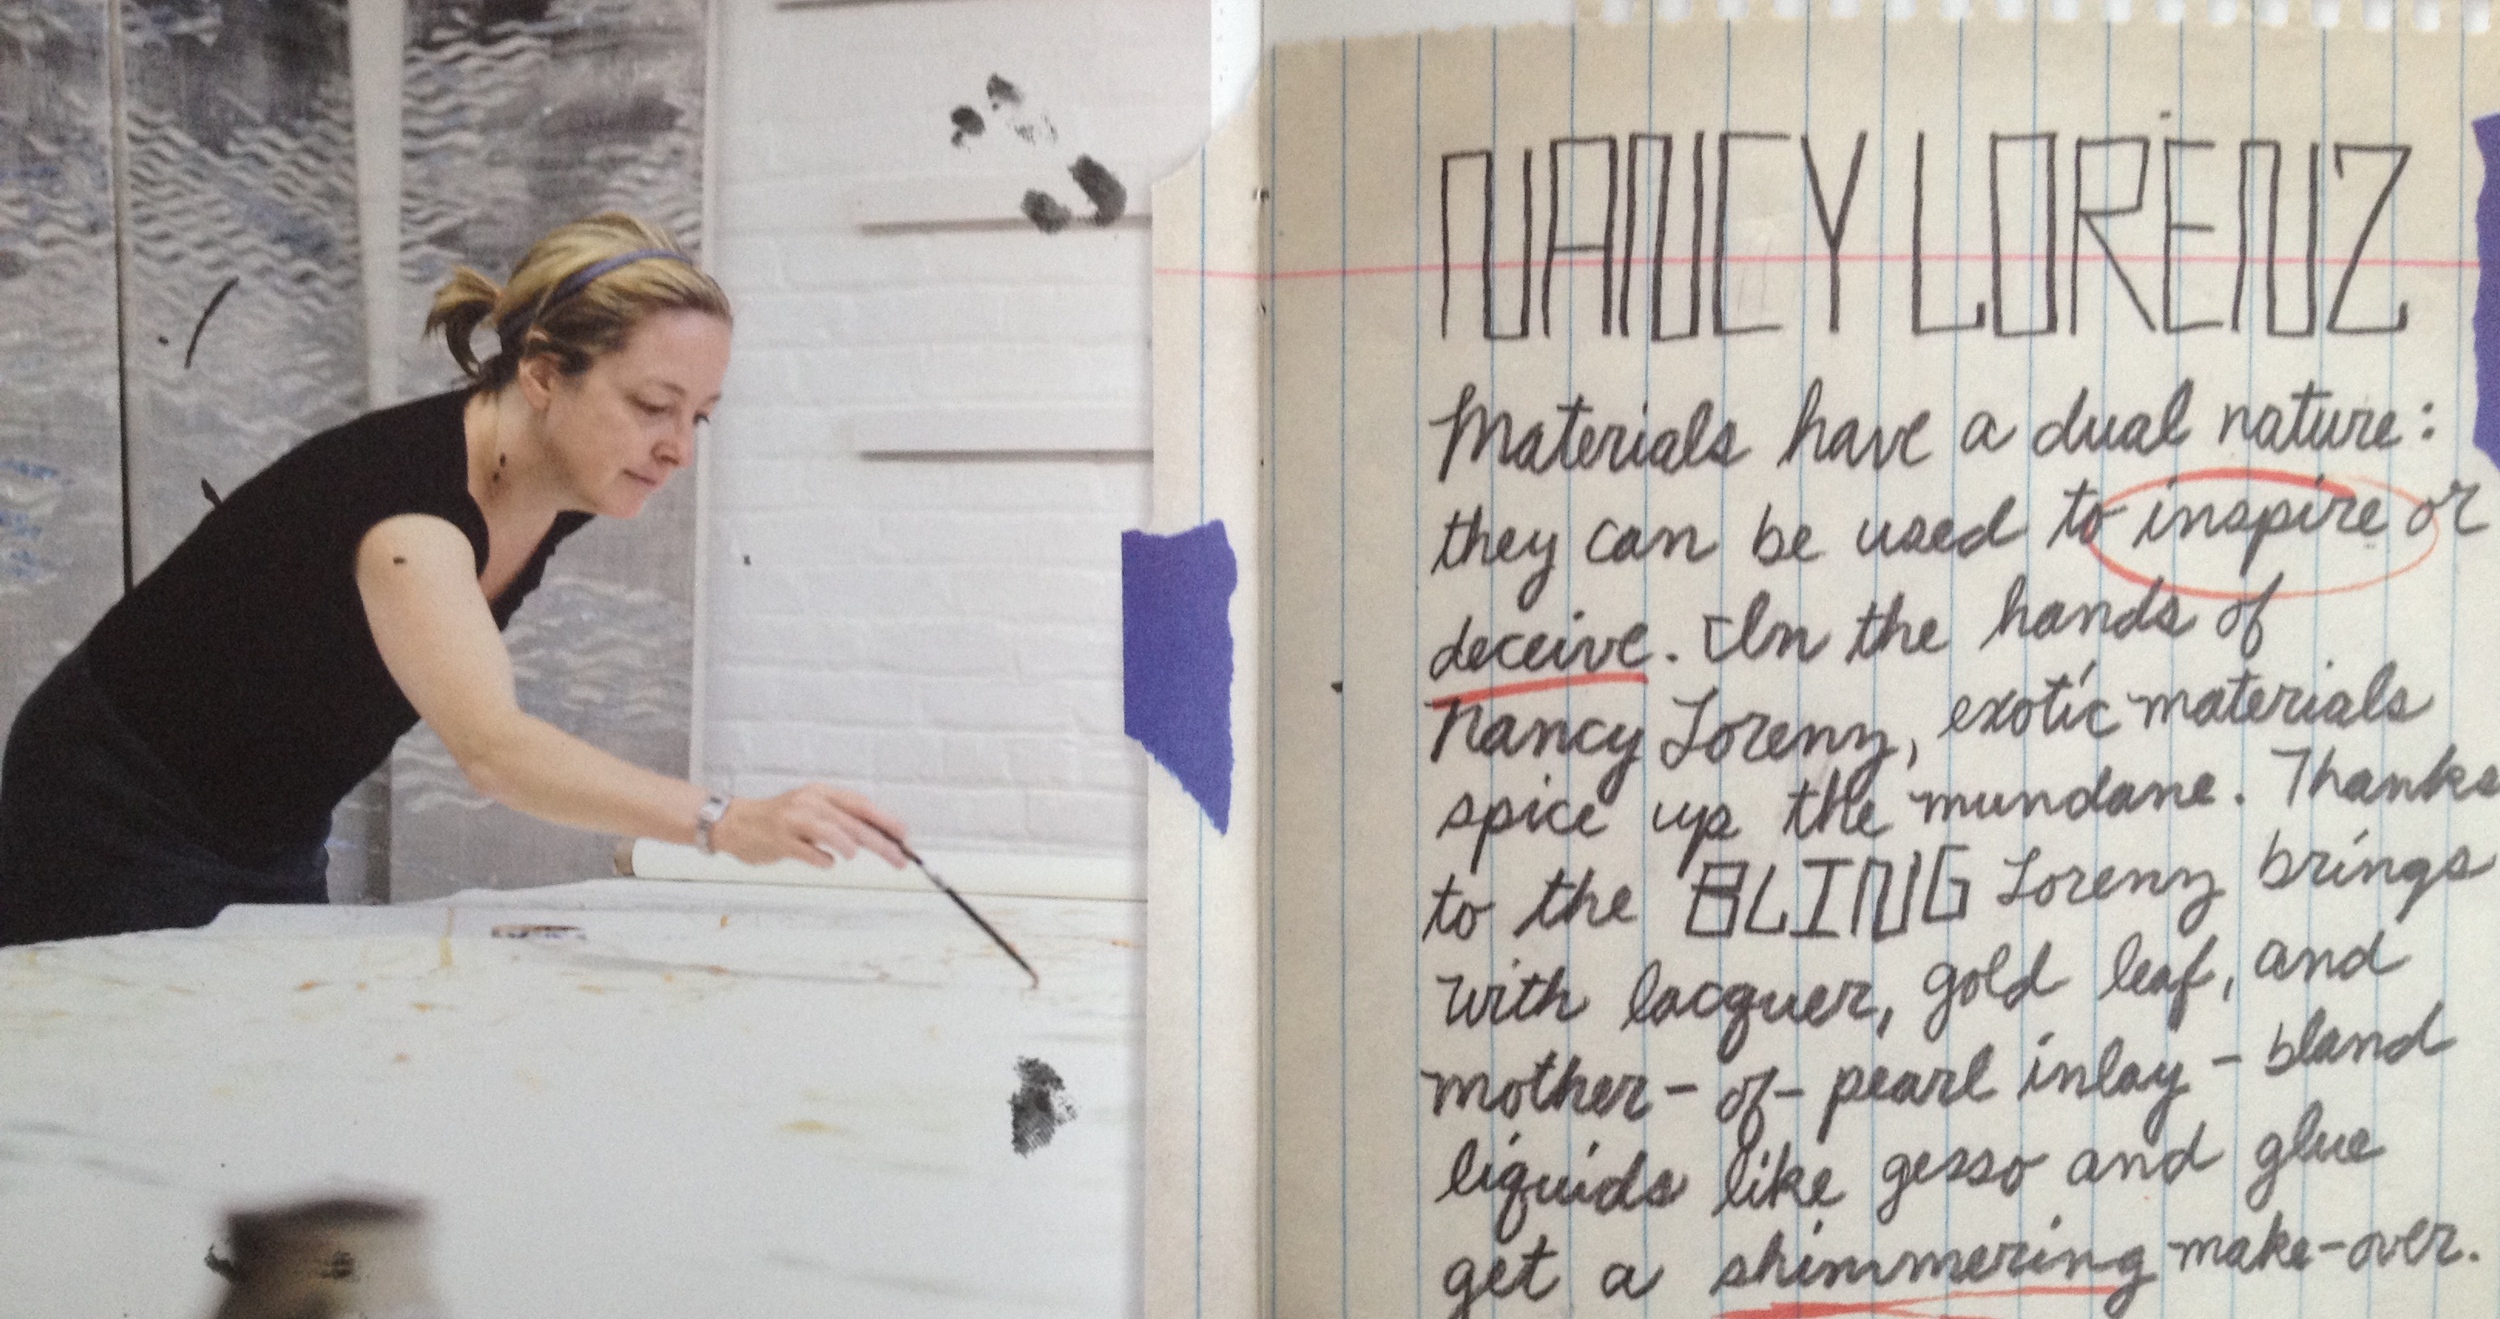 NANCY LORENZ
Materials have a dual nature:
they can be used to inspire or
deceive. In the hands of
Nancy Lorenz, exotic materials
spice up the mundane. Thanks
to the BLING Lorenz brings
with lacquer, gold leaf, and
mother-of-pearl inlay - bland
liquids like gesso and glue
get a shimmering make-over.